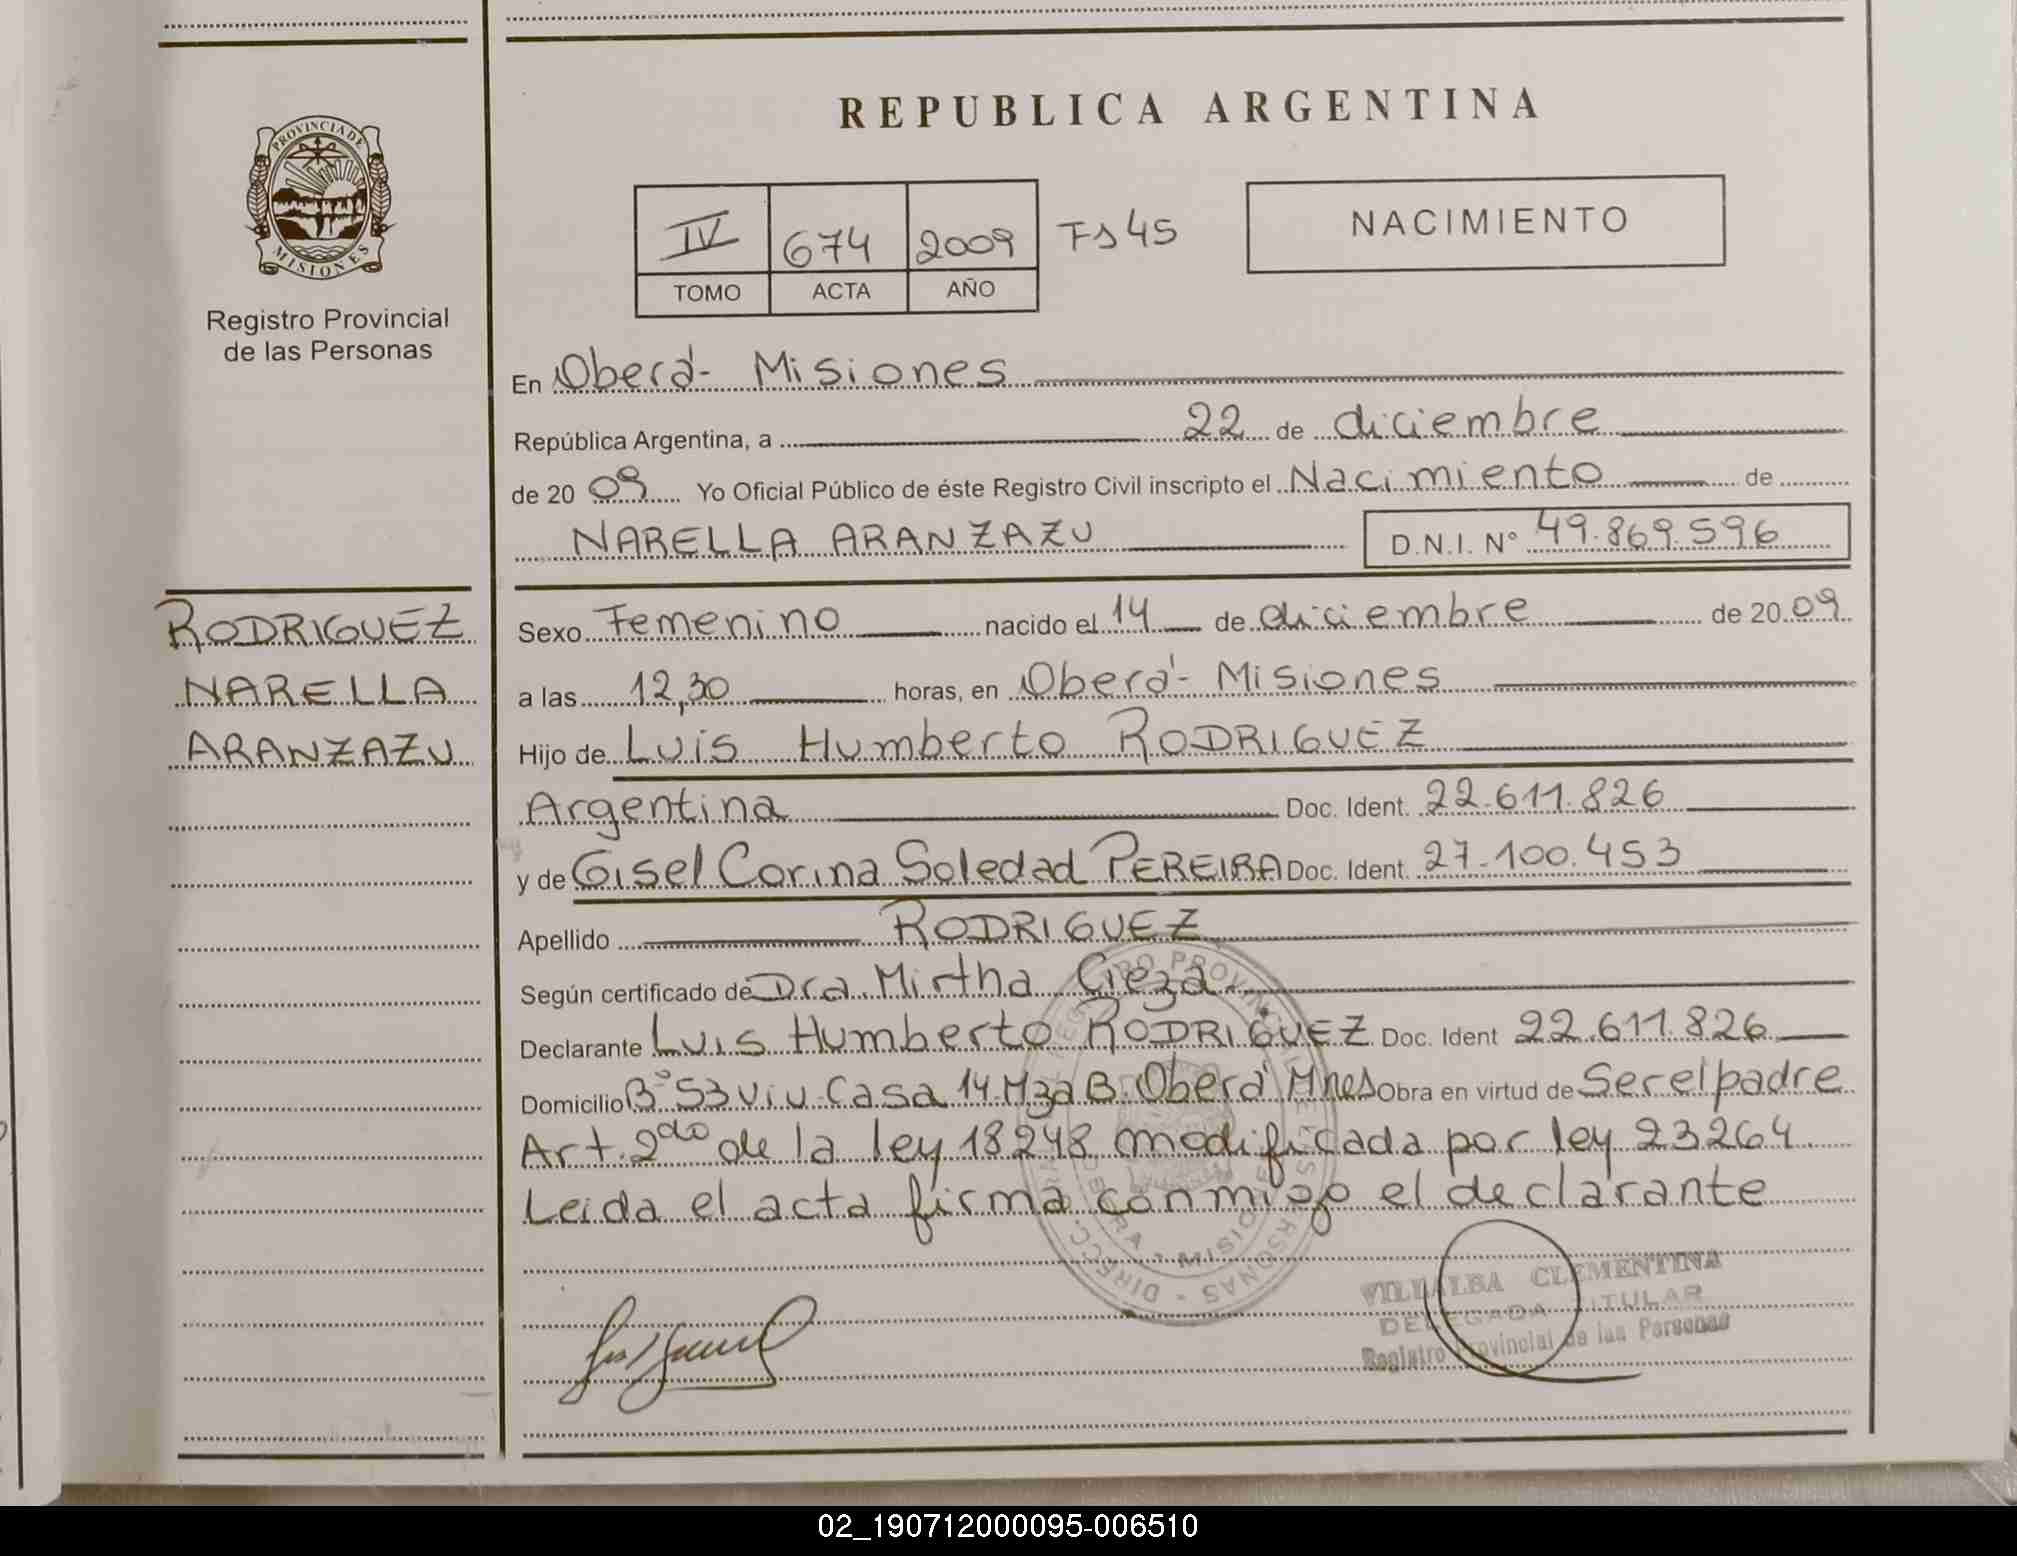 PROVINCIA DE
MISIONES
Registro Provincial
de las Personas
RODRIGUEZ
NARELLA
ARANZAZU
REPUBLICA ARGENTINA
IV 674 2009 Fs 45
TOMO ACTA AÑO
NACIMIENTO
En Oberá - Misiones
República Argentina, a 22 de diciembre
de 20 09 Yo Oficial Público de éste Registro Civil inscripto el Nacimiento de
NARELLA ARANZAZU D.N.I. N° 49.869.596
Sexo Femenino nacido el 14 de diciembre de 20 09
a las 12,30 horas, en Oberá - Misiones
Hijo de Luis Humberto RODRIGUEZ
Argentina Doc. Ident. 22.611.826
y de Gisel Corina Soledad PEREIRA Doc. Ident. 27.100.453
Apellido RODRIGUEZ
Según certificado de Dra. Mirtha Cieza
Declarante Luis Humberto RODRIGUEZ Doc. Ident 22.611.826
Domicilio B° 53 Viv. Casa 14 Mza B. Oberá Mnes Obra en virtud de Ser el padre
Art. 2do de la ley 18248 modificada por ley 23264
Leida el acta firma conmigo el declarante
VILLALBA CLEMENTINA
DELEGADA TITULAR
Registro Provincial de las Personas
02_190712000095-006510